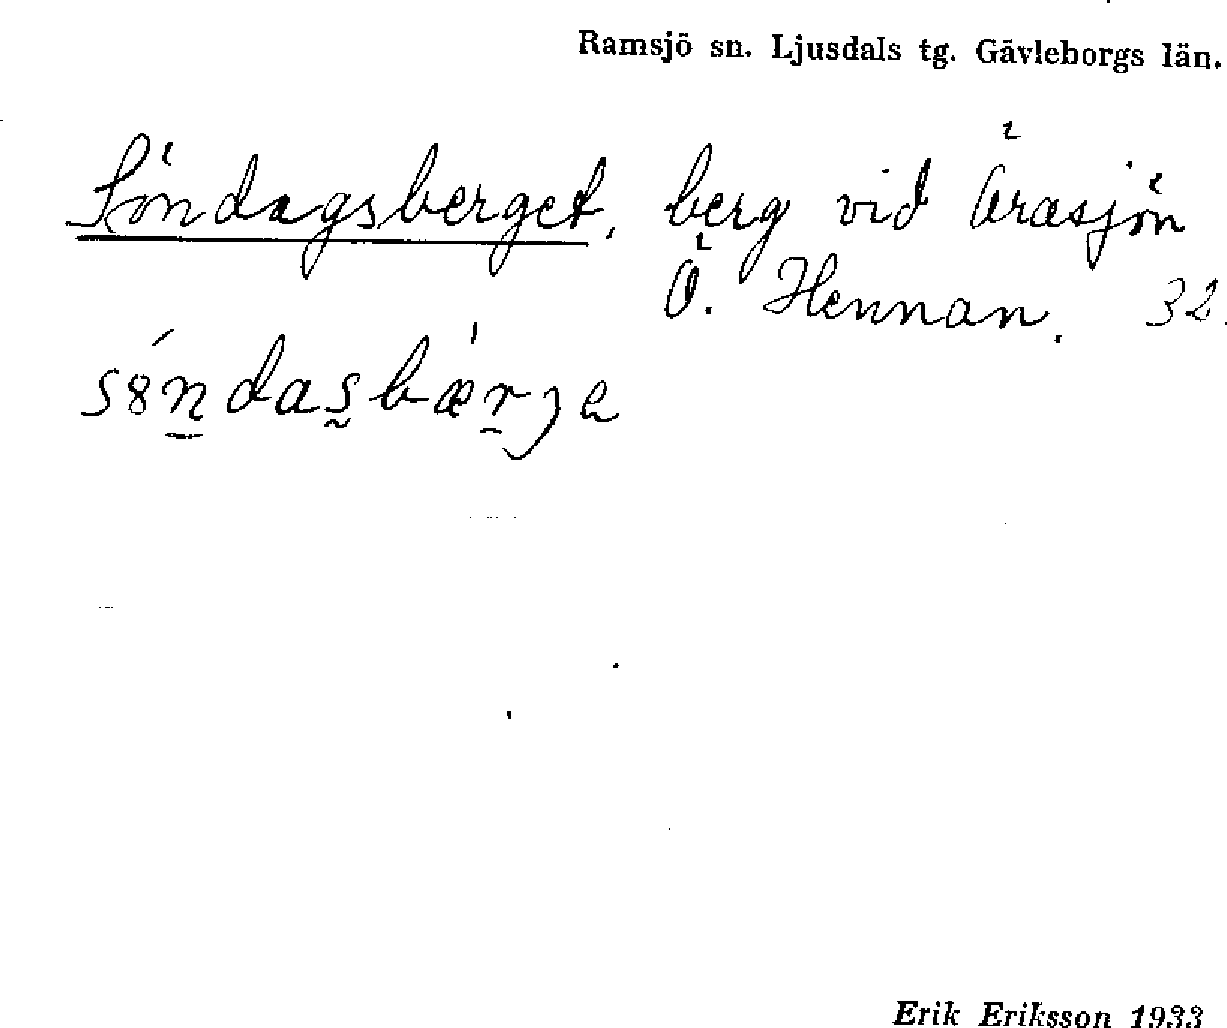 Ramsjö sn. Ljusdals tg. Gävleborgs län.
Söndagsberget, berg vid Örasjön
Ö. Hennan. 32.
Erik Eriksson 1933